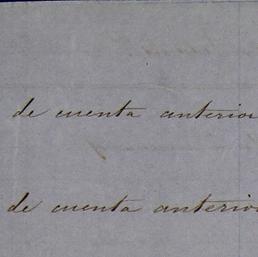 de cuenta anterior
de cuenta anterior